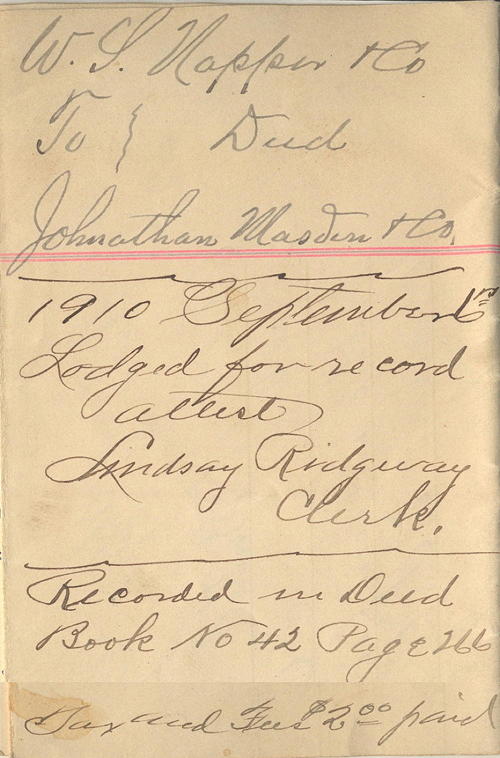 W. S. Napper & Co
To } Deed
Johnathan Masden & Co.
1910 September 1rst
Lodged for record
attest
Lindsay Ridgway
Clerk.
Recorded in Deed
Book No 42 Page 266
Tax and Fees $2.00 paid